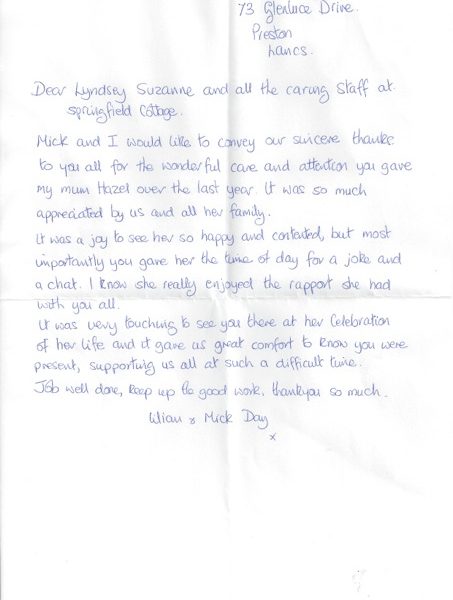 73 Glenluce Drive.
Preston
Lancs.
Dear Lyndsey Suzanne and all the caring staff at
Springfield Cottage.
Mick and I would like to convey our sincere thanks
to you all for the wonderful care and attention you gave
my mum Hazel over the last year. It was so much
appreciated by us and all her family.
It was a joy to see her so happy and contented, but most
importantly you gave her the time of day for a joke and
a chat. I know she really enjoyed the rapport she had
with you all.
It was very touching to see you there at her Celebration
of her life and it gave us great comfort to know you were
present, supporting us all at such a difficult time.
Job well done, keep up the good work, thankyou so much.
& Mick Day
x